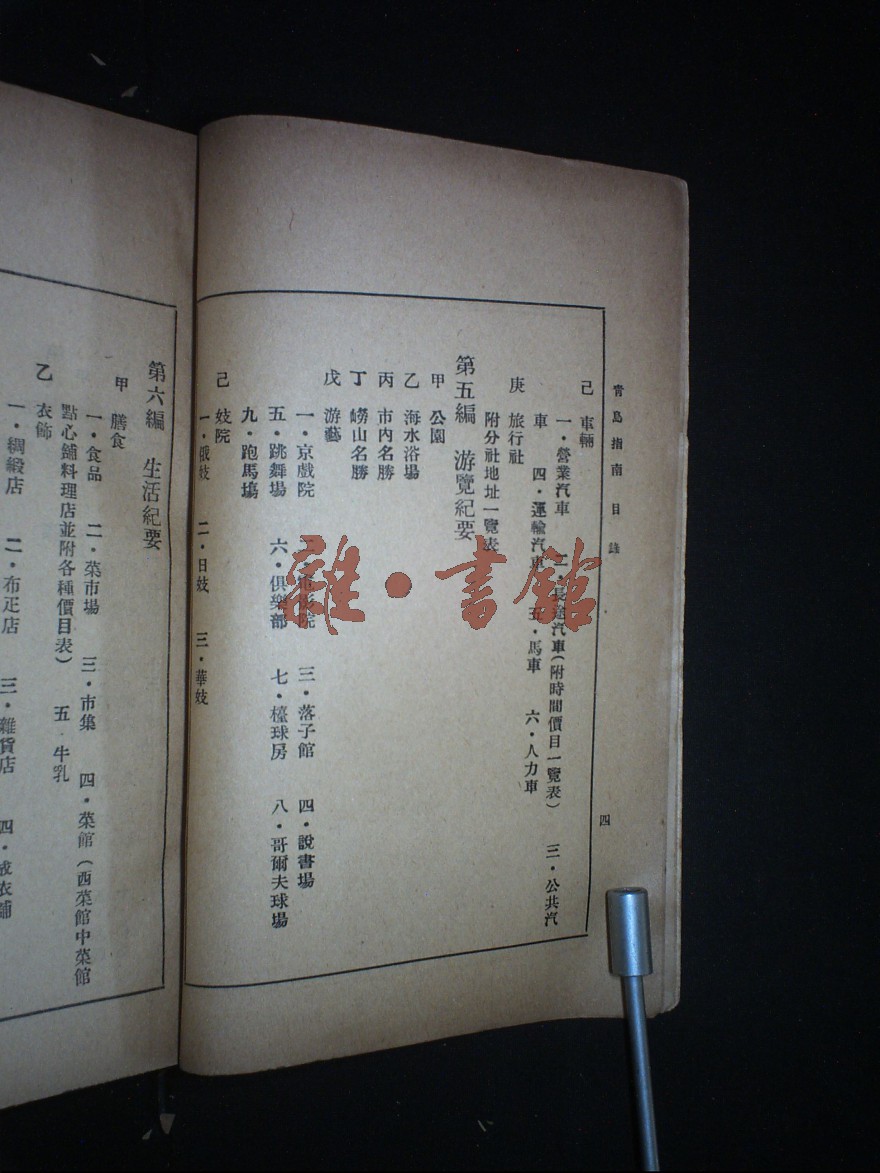 青島指南目錄
四
己　車輛
一・營業汽車　二・長途汽車（附時間價目一覽表）　三・公共汽
車　四・運輸汽車　五・馬車　六・人力車
庚　旅行社
附分社地址一覽表
第五編　游覽紀要
甲　公園
乙　海水浴場
丙　市內名勝
丁　嶗山名勝
戊　游藝
一・京戲院　二・電影院　三・落子館　四・說書場
五・跳舞場　六・俱樂部　七・檯球房　八・哥爾夫球場
九・跑馬塲
己　妓院
一・俄妓　二・日妓　三・華妓
第六編　生活紀要
甲　膳食
一・食品　二・菜市場　三・市集　四・菜館（西菜館中菜館
點心鋪料理店並附各種價目表）　五・牛乳
乙　衣飾
一・綢緞店　二・布疋店　三・雜貨店　四・成衣鋪
雜・書館